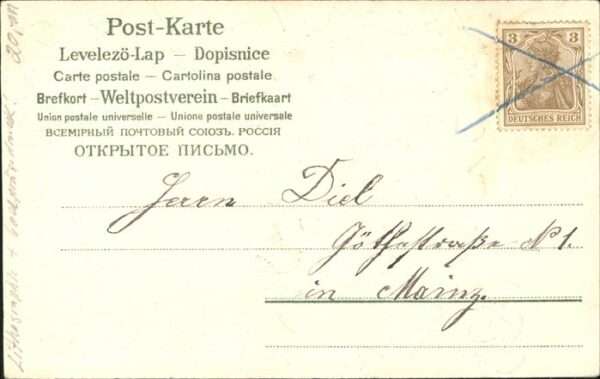 Post-Karte
Levelezö-Lap — Dopisnice
Carte postale — Cartolina postale
Brefkort — Weltpostverein — Briefkaart
Union postale universelle — Unione postale universale
ВСЕМІРНЫЙ ПОЧТОВЫЙ СОЮЗЪ. РОССІЯ
ОТКРЫТОЕ ПИСЬМО.
3 3
DEUTSCHES REICH
Herrn Diel
Göthestraße N 1.
in Mainz.
Lithographie +